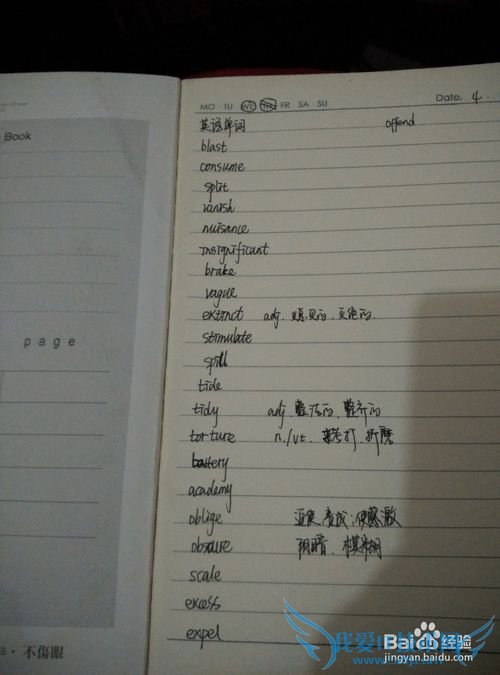 Book
page
不傷眼
MO TU WE TH FR SA SU
Date. 4.
英语单词 offend
blast
consume
split
vanish
nuisance
insignificant
brake
vague
extinct adj. 熄灭的.灭绝的.
stimulate
spill
tide
tidy adj. 整洁的.整齐的
torture n./vt. 拷打.折磨
battery
academy
oblige 迫使 责成;使感激
obscure 阴暗.模糊
scale
excess
expel
Baidu 经验
jingyan.baidu.com